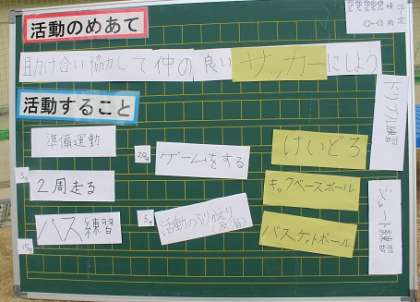 活動のめあて
助け合い協力して仲の良いサッカーにしよう
活動すること
準備運動
5分
2周走る
パス練習
20分
ゲームをする
5分
活動のふりかえり
けいどろ
キックベースボール
バスケットボール
ドリブル練習
シュート練習